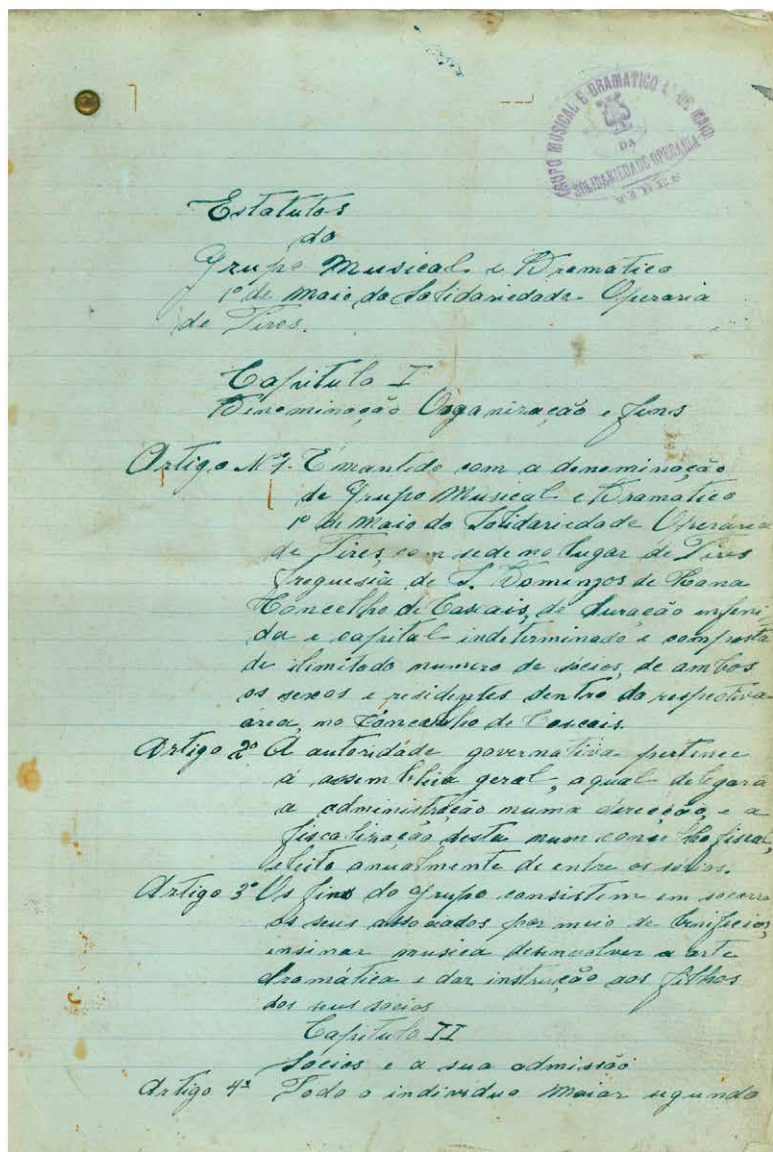 GRUPO MUSICAL E DRAMATICO 1º DE MAIO
DA
SOLIDARIEDADE OPERARIA
TIRES
Estatutos
do
Grupo Musical e Dramatico
1º de Maio da Solidariedade Operaria
de Tires.
Capitulo I
Denominação Organização e fins
Artigo Nº1. É mantido com a denominação
de Grupo Musical e Dramatico
1º de Maio da Solidariedade Operária
de Tires, com sede no lugar de Tires
freguesia de S. Domingos de Rana
Concelho de Cascais, de duração infini-
da e capital indeterminado e composta
de ilimitado numero de sócios, de ambos
os sexos e residentes dentro da respectiva
área, no Concelho de Cascais.
Artigo 2º A autoridade governativa pertence
á assembleia geral, a qual delegará
a administração numa direcção, e a
fiscalização desta num conselho fiscal,
eleito anualmente de entre os socios.
Artigo 3º Os fins do grupo consistem em socorrer
os seus associados por meio de beneficios,
ensinar musica desenvolver a arte
dramática e dar instrução aos filhos
dos seus sócios
Capitulo II
Sócios e a sua admissão
Artigo 4º Todo o individuo maior segundo